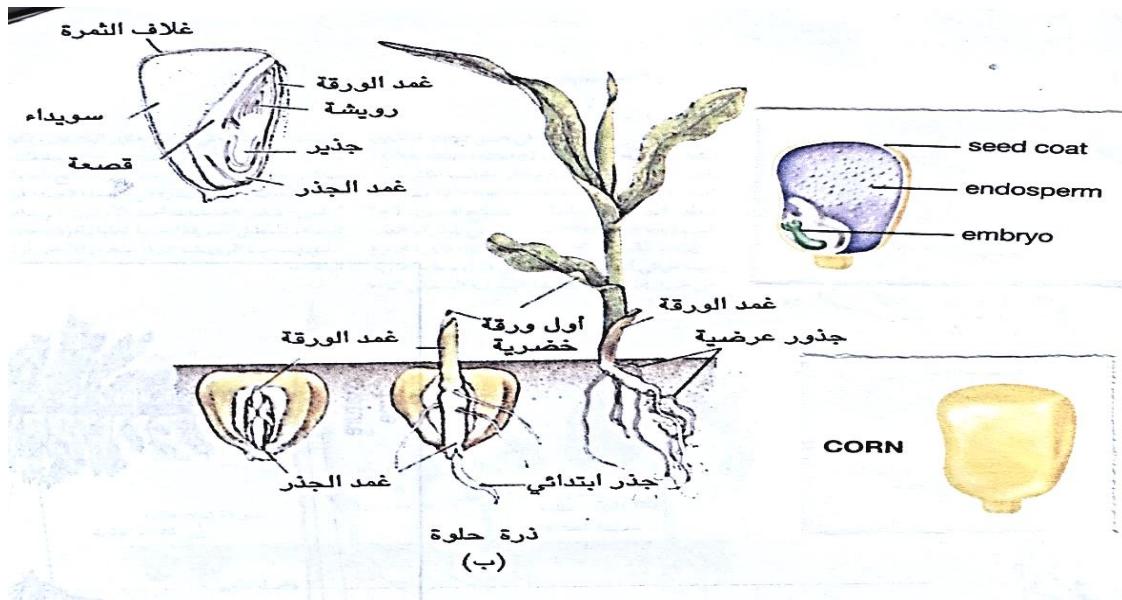 غلاف الثمرة
غمد الورقة
رويشة
سويداء
جذير
قصعة
غمد الجذر
seed coat
endosperm
embryo
غمد الورقة
أول ورقة
خضرية
جذور عرضية
غمد الورقة
CORN
غمد الجذر
جذر ابتدائي
ذرة حلوة
(ب)